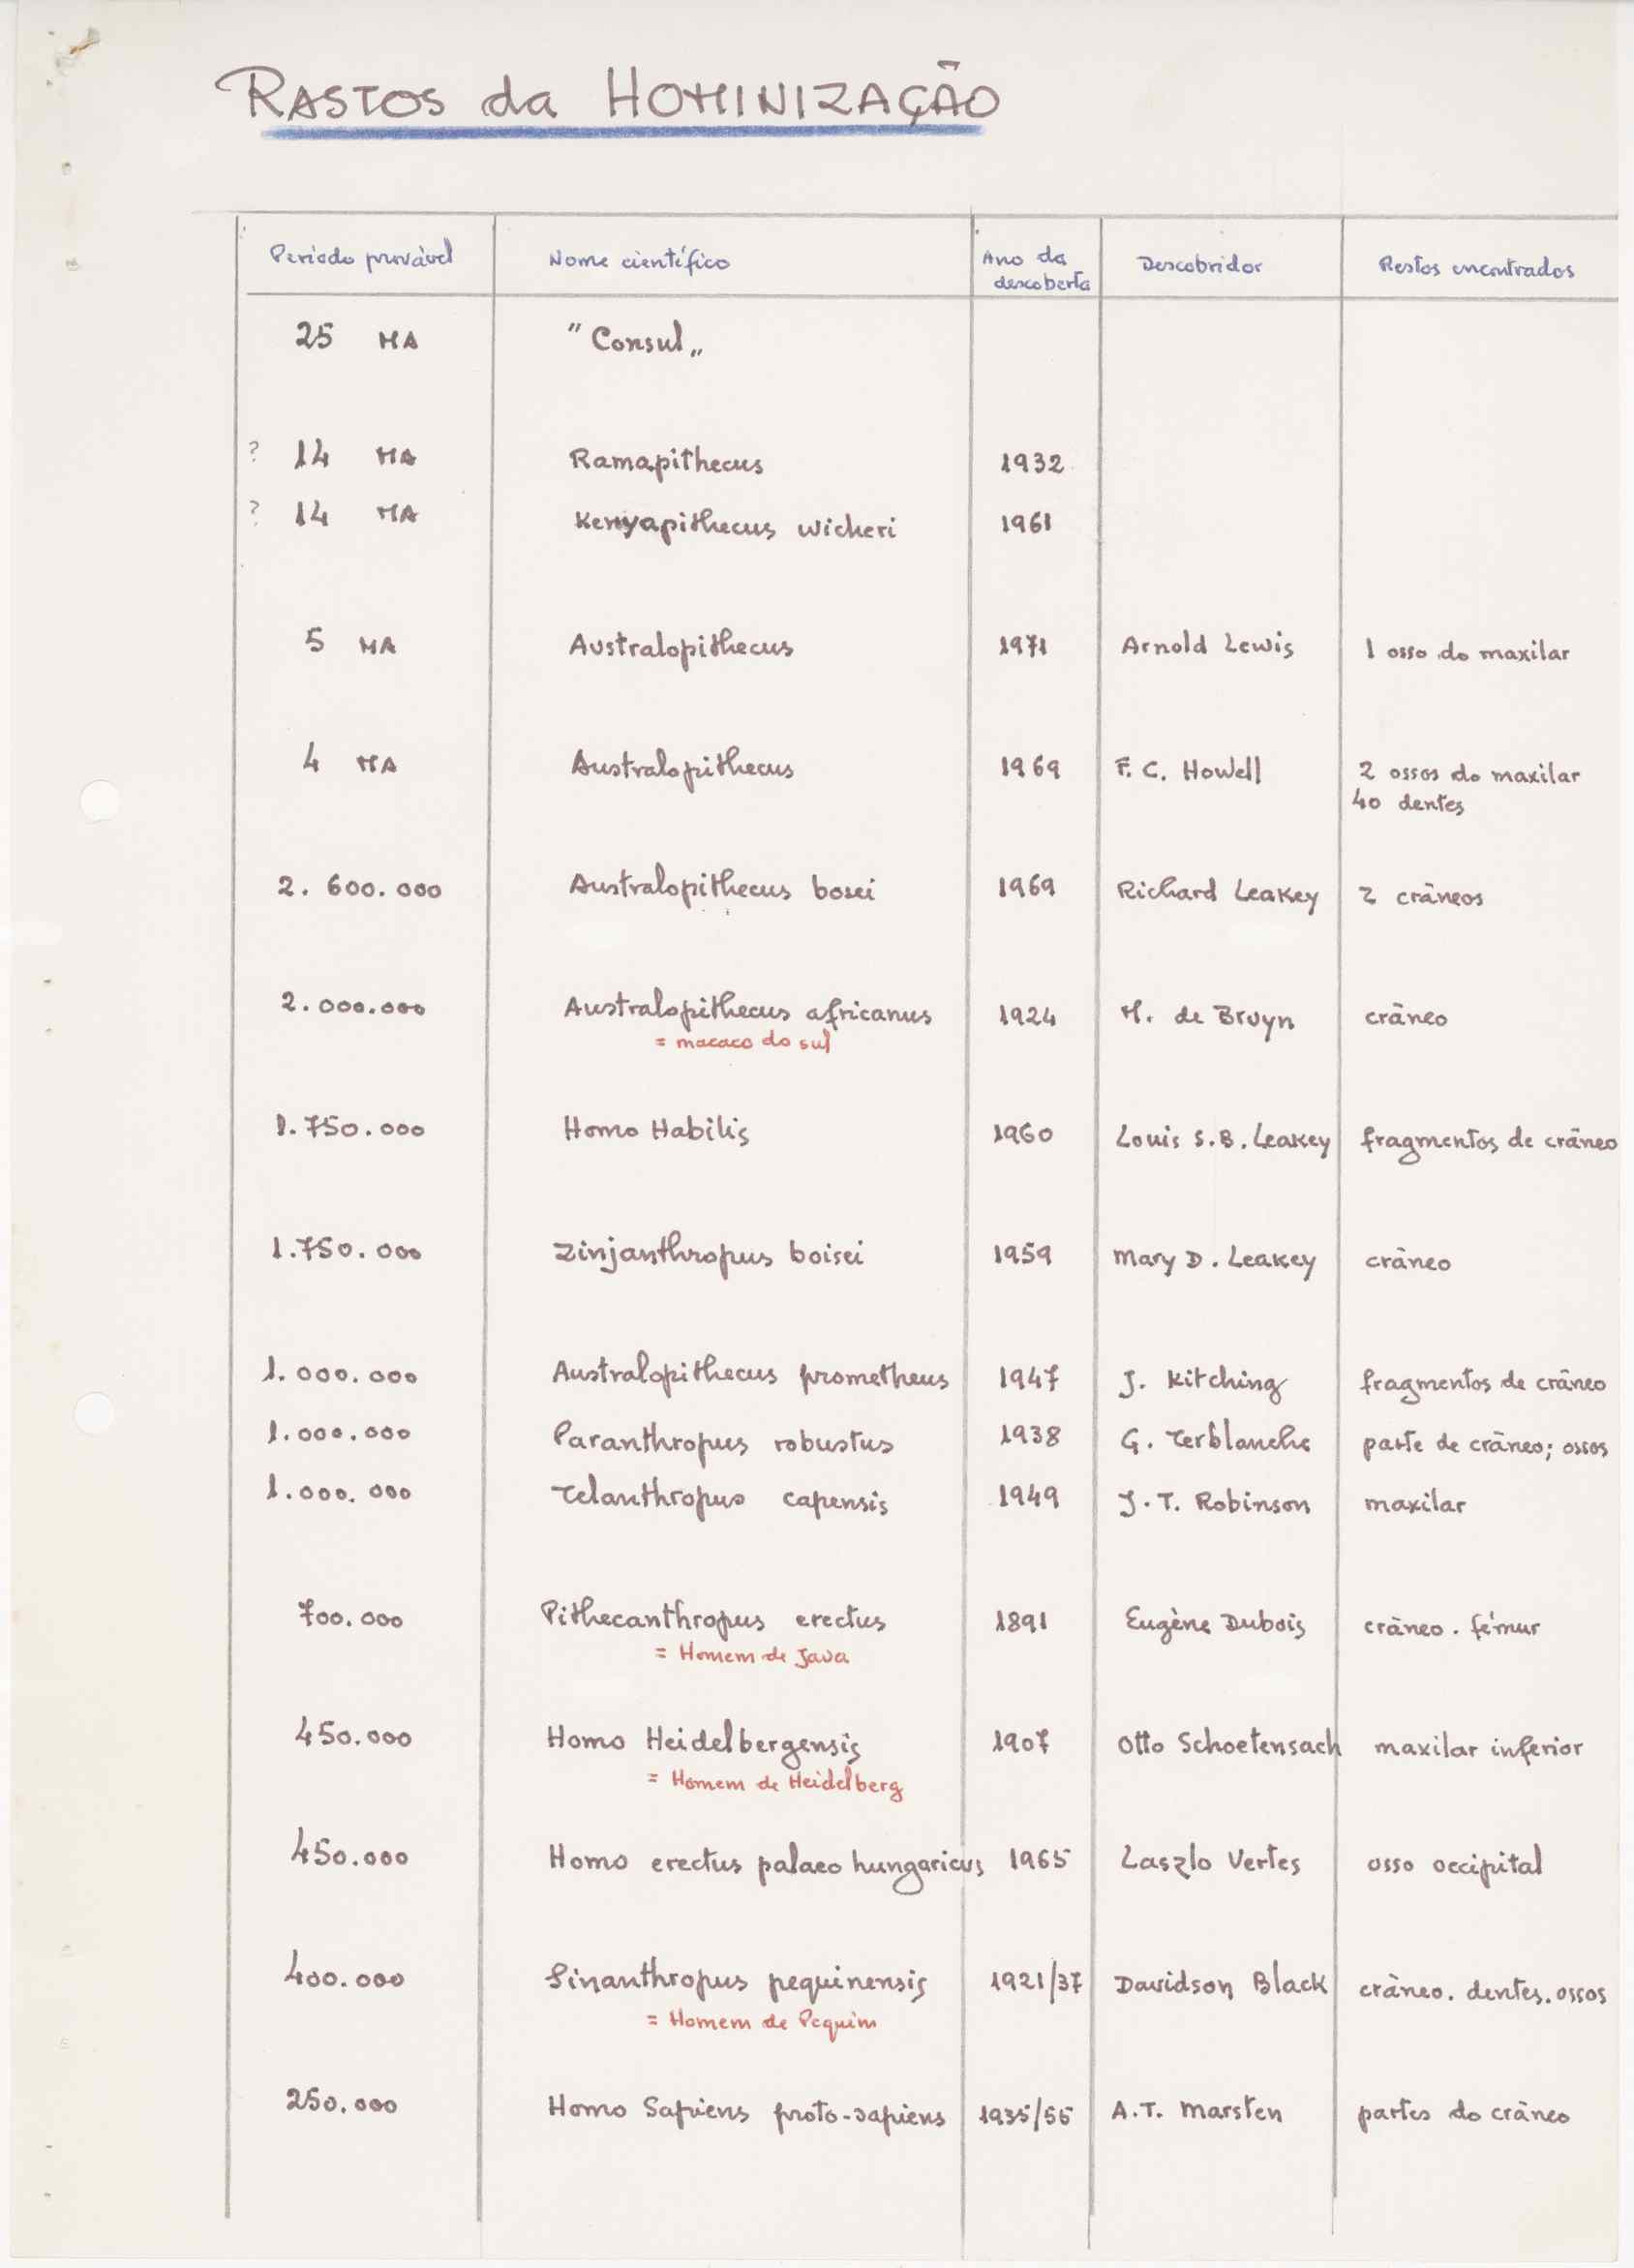 RASTOS da HOMINIZAÇÃO
Período provável Nome científico Ano da descoberta Descobridor Restos encontrados
25 MA "Consul"
? 14 MA Ramapithecus 1932
? 14 MA Kenyapithecus wickeri 1961
5 MA Australopithecus 1971 Arnold Lewis 1 osso do maxilar
4 MA Australopithecus 1969 F. C. Howell 2 ossos do maxilar
40 dentes
2.600.000 Australopithecus bosei 1969 Richard Leakey 2 crâneos
2.000.000 Australopithecus africanus 1924 M. de Bruyn crâneo
= macaco do sul
1.750.000 Homo Habilis 1960 Louis S.B. Leakey fragmentos de crâneo
1.750.000 Zinjanthropus boisei 1959 Mary D. Leakey crâneo
1.000.000 Australopithecus prometheus 1947 J. Kitching fragmentos de crâneo
1.000.000 Paranthropus robustus 1938 G. Terblanche parte de crâneo; ossos
1.000.000 Telanthropus capensis 1949 J.T. Robinson maxilar
700.000 Pithecanthropus erectus 1891 Eugène Dubois crâneo. fémur
= Homem de Java
450.000 Homo Heidelbergensis 1907 Otto Schoetensach maxilar inferior
= Homem de Heidelberg
450.000 Homo erectus palaeo hungaricus 1965 Laszlo Vertes osso occipital
400.000 Sinanthropus pequinensis 1921/37 Davidson Black crâneo. dentes. ossos
= Homem de Pequim
250.000 Homo Sapiens proto-sapiens 1935/55 A.T. Marsten partes do crâneo